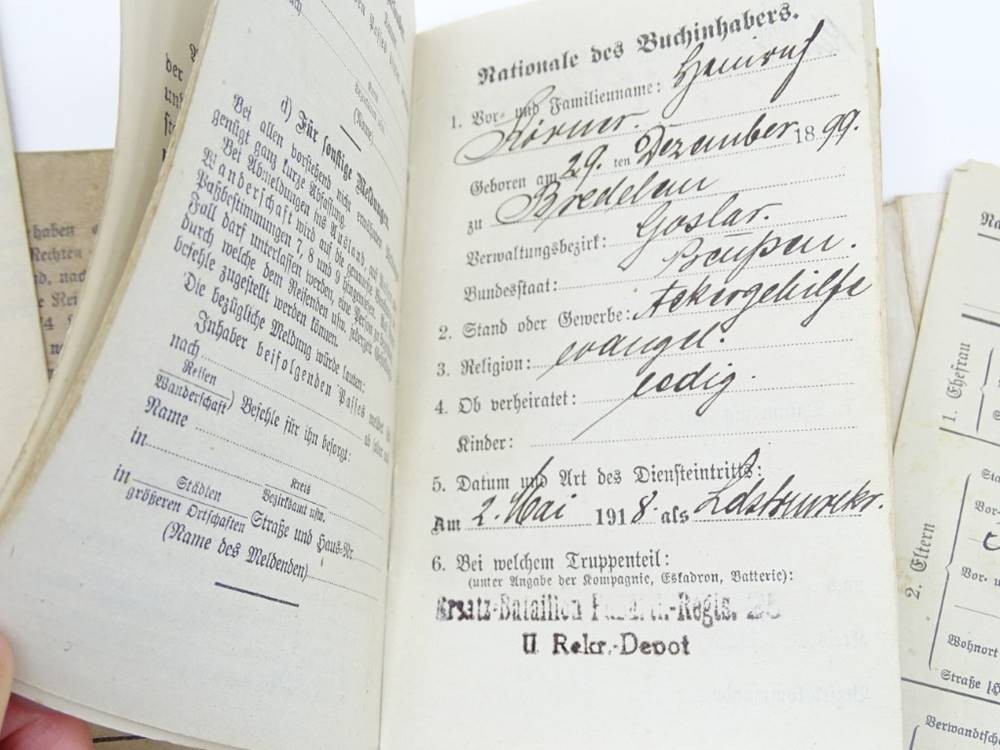 haben
Rechten
nd, nach
der
d) Für sonstige Meldungen.
Bei allen vorstehend nicht erwähnten
genügt ganz kurze Abfassung.
Bei Abmeldungen ins Ausland, auf
Wanderschaft wird auf die genaue
Paßbestimmungen 7, 8 und 9 hingewiesen.
Fall darf unterlassen werden, eine Person zu
durch welche dem Reisenden usw. jederzeit
befehle zugestellt werden können.
Die bezügliche Meldung würde lauten:
Inhaber beifolgenden Passes meldet sich
nach
Reisen
Wanderschaft) Befehle für ihn besorgt:
Name
in
Kreis
Bezirksamt usw.
in Städten
größeren Ortschaften Straße und Haus-Nr.
(Name des Meldenden)
Nationale des Buchinhabers.
1. Vor- und Familienname: Heinrich
Körner.
Geboren am 29. ten Dezember 1899.
zu Bredelem
Verwaltungsbezirk: Goslar.
Bundesstaat: Preußen.
2. Stand oder Gewerbe: Ackergehilfe
3. Religion: evangel.
4. Ob verheiratet: ledig.
Kinder:
5. Datum und Art des Diensteintritts:
Am 2. Mai 1918. als Ldstrmrekr.
6. Bei welchem Truppenteil:
(unter Angabe der Kompagnie, Eskadron, Batterie):
Ersatz-Bataillon -Regts.
II Rekr.-Depot
1. Ehefrau
2. Eltern
Vor-
Vor- u
Wohnort
Straße
Verwandtsch